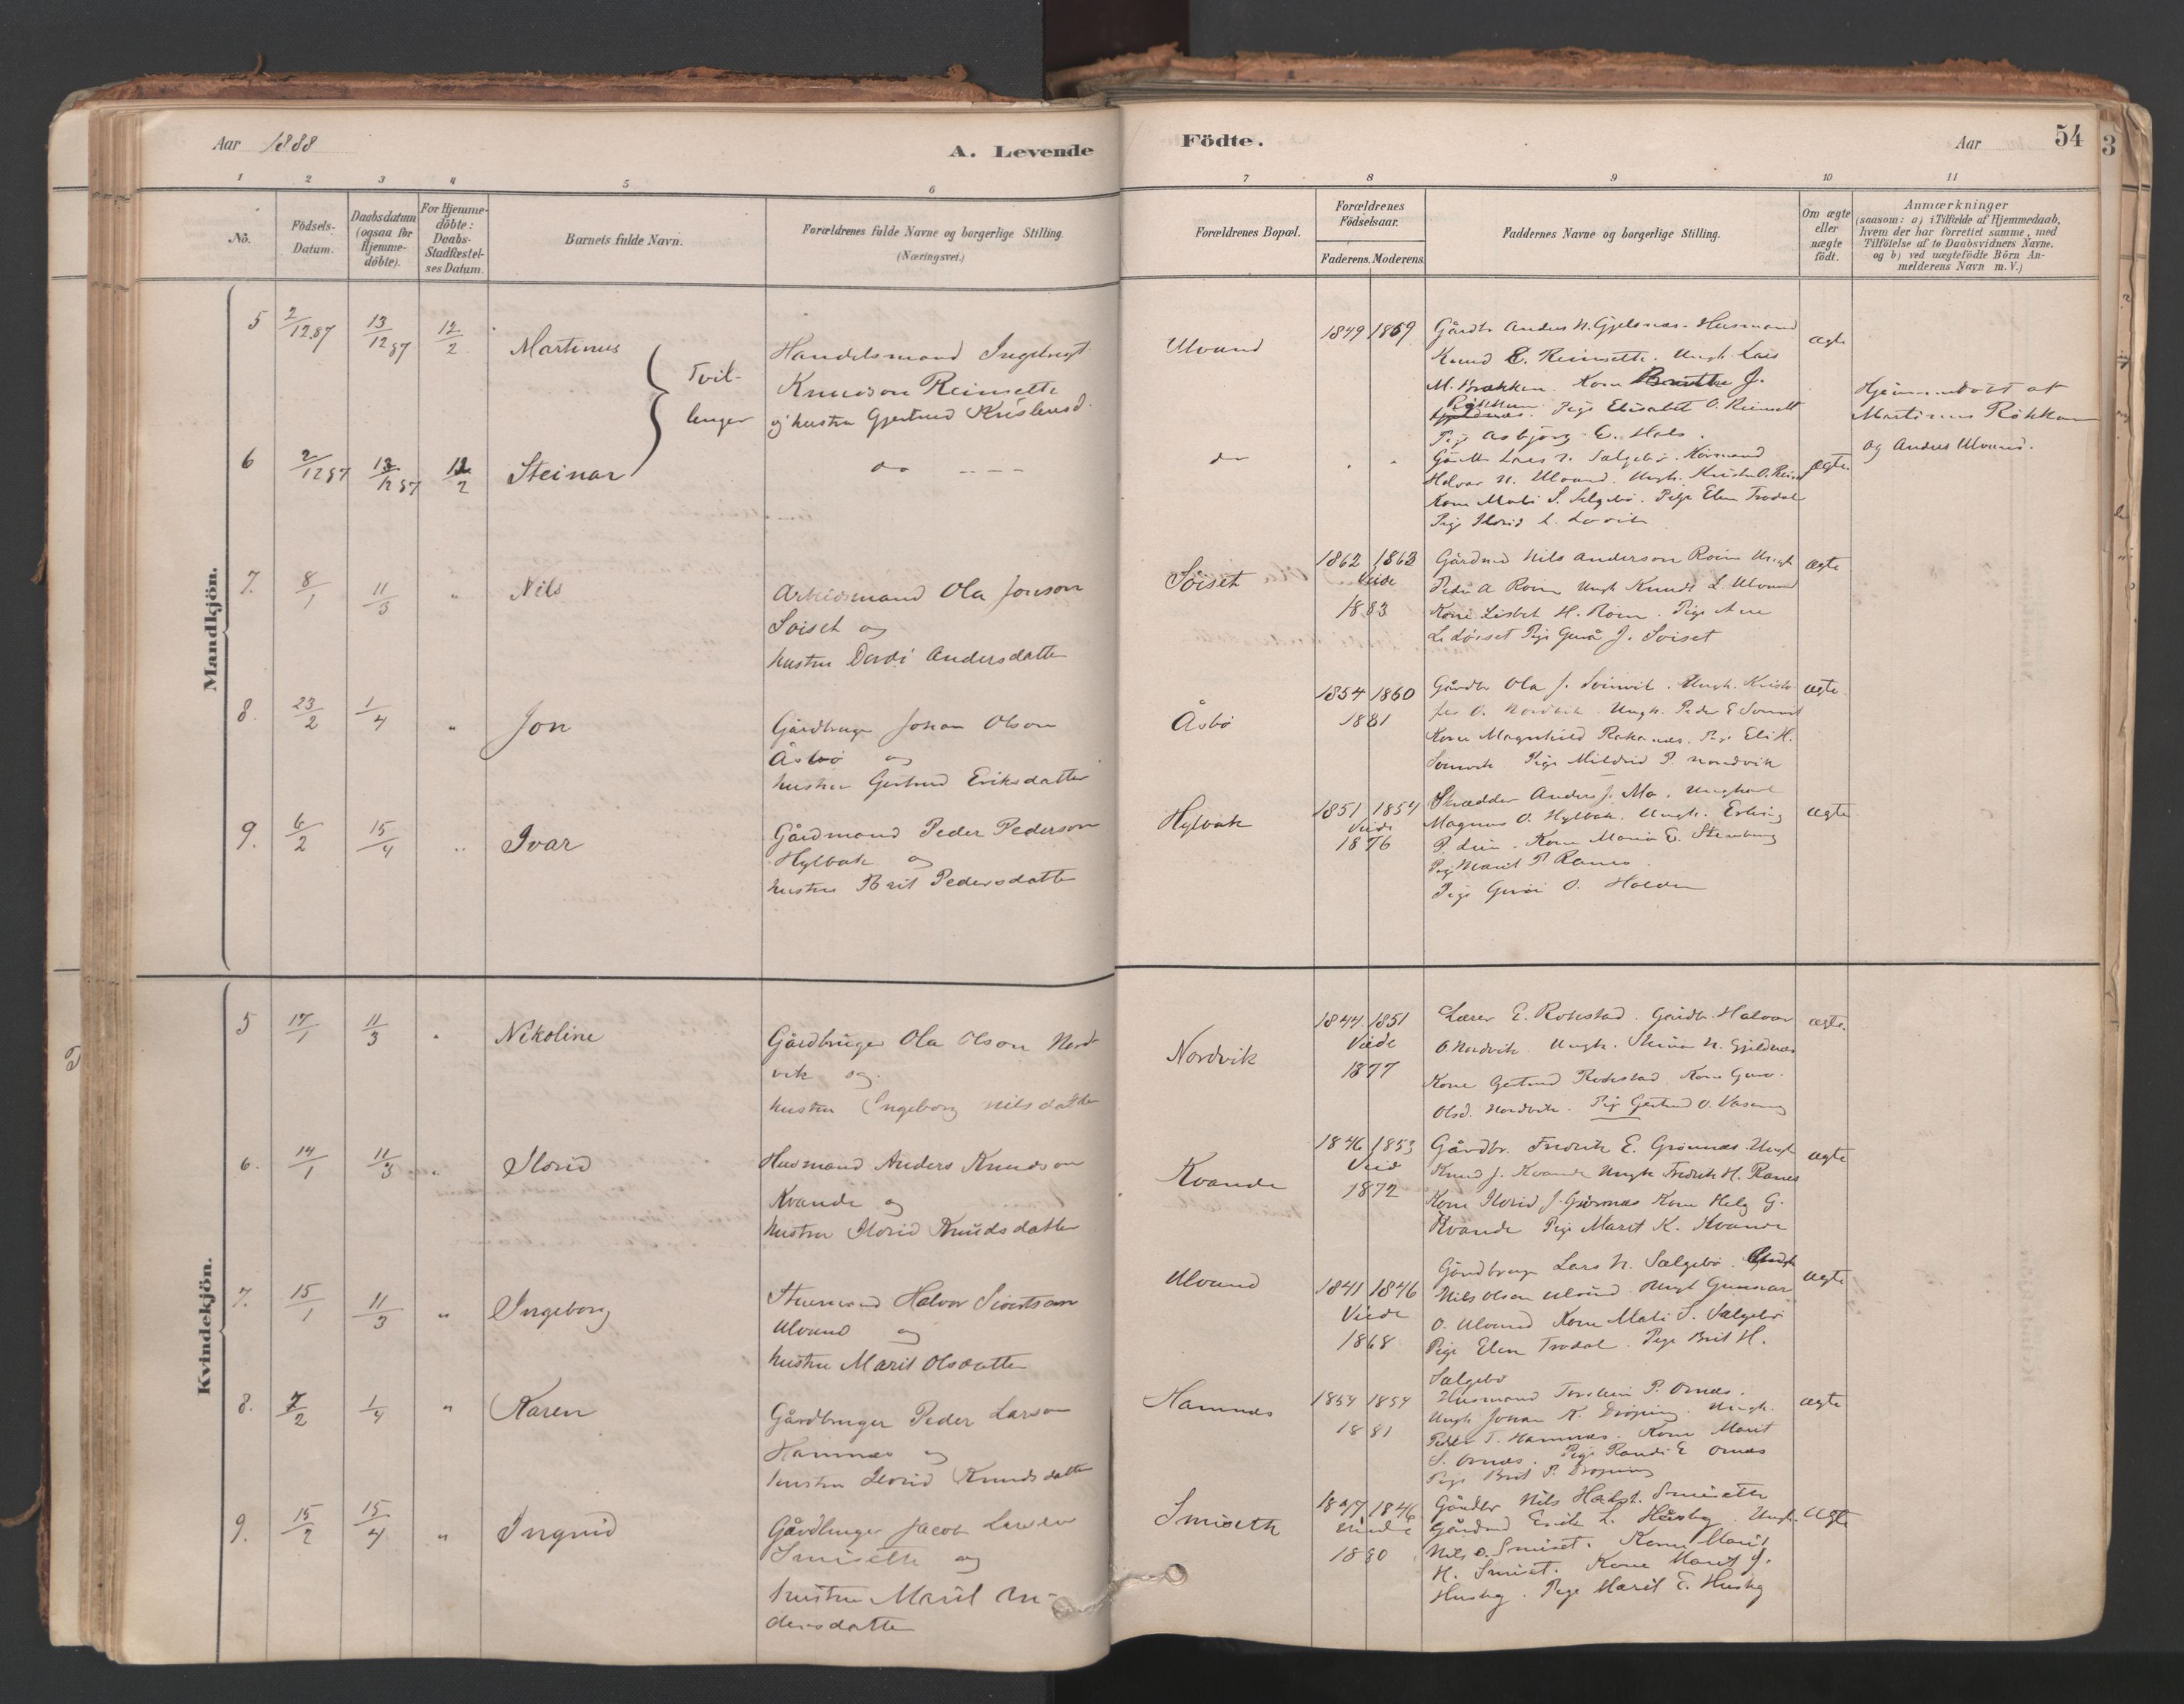 Aar 1888
A. Levende
Födte.
Aar
54
3
1 2 3 4 5 6
7 8 9 10 11
No.
Födsels-
Datum.
Daabsdatum
(ogsaa for
Hjemme-
döbte).
For Hjemme-
döbte:
Daabs-
Stadfæstel-
ses Datum.
Barnets fulde Navn.
Forældrenes fulde Navne og borgerlige Stilling.
(Næringsvei.)
Forældrenes Bopæl.
Forældrenes
Födselsaar.
Faderens. Moderens.
Faddernes Navne og borgerlige Stilling.
Om ægte
eller
uægte
födt.
Anmærkninger
(saasom: a) i Tilfælde af Hjemmedaab,
hvem der har forrettet samme, med
Tilföielse af to Daabsvidners Navne.
og b) ved uægtefödte Börn An-
melderens Navn m.V.)
Mandkjön.
5 2/12 87 13/12 87 12/2 Martinus
Tvil-
linger
Handelsmand Ingebrigt
Knudson Reinsette
og hustru Gjertrud
Ulvund
1849 1869
Gårdbr Anders N. Gjeldnæs. Husmand
Knud E. Reinsette. Ungk. Lars
M. Brækken. Kone J.
Røkkum. Pige Elisabet O. Reinsett
Pige Asbjørg E. Hals.
ægte
Hjemmedøbt af
Martinus Rökkum
og Anders Ulvund.
6 2/12 87 13/12 87 12/2 Steinar
do
do
" "
Lars N. Sælgebø.
Halvor N. Ulvund. Ungk.
Kone Mali S. Selgebø. Pige Elen Trodal
Pige Storid L.
ægte.
7. 8/1 11/3 " Nils
Arbeidsmand Ola Jonson
Soiset og
hustru Dordi Andersdatter
Söiset
1862 1863
Viede
1883
Gårdmd Nils Anderson Roen Ungk
Peder A Roen Ungk Knudt L. Ulvund
Kone Lisbet H. Roen. Pige Ane
L. Pige Gurå J. Soiset
ægte
8. 23/2 1/4 " Jon
Gårdbruger Johan Olson
Åsbø og
hustru Gertrud Eriksdatter
Åsbø
1854 1860
1881
Gårdbr Ola J. Soinvik. Ungk. Kristo-
fer O. Nordvik. Ungk. Peder E Sonvik
Kone Magnhild. Pige Eli H.
Soinvik Pige Mildrid P. Nordvik
ægte.
9. 6/2 15/4 " Ivar
Gårdmand Peder Pederson
Hylbak og
hustru Brit Pedersdatter
Hylbak
1851 1854
Viede
1876
Skrædder Anders J. Mo. Ungkarl
Magnus O. Hylbak. Ungk. Erling
P. Kone Maria E.
Pige Marit P Ranes
Pige Guroi O. Halden
ægte
Kvindekjön.
5 17/1 11/3 " Nikoline
Gårdbruger Ola Olson Nord-
vik og
hustru Ingeborg Nilsdatter
Nordvik
1844 1851
Viede
1877
Lærer E. Rokstad. Gårdbr. Halvor
O. Nordvik. Ungk. Steinar N. Gjeldnæs
Kone Gertrud Rokstad. Kone Guro
Olsd. Nordvik. Pige Gertrud O.
ægte.
6. 14/1 11/3 " Storid
Husmand Anders Knudson
Kvande og
hustru Storid Knudsdatter
Kvande
1846 1853
Viede
1872
Gårdbr. Fredrik E. Grønnæs. Ungk
Knud J. Kvande Ungk Fredrik H. Ranes
Kone Storid J. Kone Helg G.
Kvande Pige Marit K. Kvande
ægte
7. 15/1 11/3 " Ingeborg
Halvor Sivertson
Ulvund og
hustru Marit Olsdatter
Ulvund
1841 1846
Viede
1868
Gårdbruger Lars N. Sælgebø.
Nils Olson Ulvund. Ungk Gunnar
O. Ulvund Kone Mali S. Sælgebø
Pige Elen Trodal. Pige Brit H.
Sælgebø
ægte
8. 7/2 1/4 " Karen
Gårdbruger Peder Larson
Hamnæs og
hustru Storid Knudsdatter
Hamnæs
1854 1854
1881
Husmand Torstein P. Ornæs.
Ungk Johan K. Drøpping. Ungk.
Peder T. Hamnæs. Kone Marit
S. Ornæs. Pige Randi E Ornæs
Pige Brit P. Drøpping
ægte
9. 15/2 15/4 " Ingrid
Gårdbruger Jacob Larsen
Smisette og
hustru Marit An-
dersdatter
Smiseth
1847 1846
Viede
1880
Gårdbr Nils Halst. Smisette
Gårdmd Erik L. Husby. Ungk.
Nils O. Smiset. Kone Marit
H. Smiset. Kone Marit J.
Husby. Pige Marit E. Husby
ægte